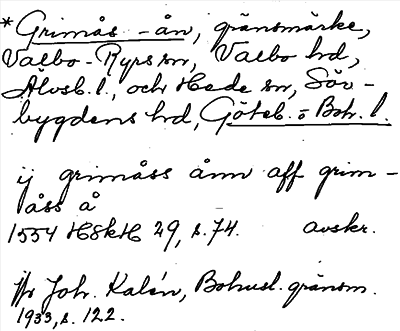 *Grimås-ån, gränsmärke,
Valbo-Ryrs sn, Valbo hd,
Älvsb. l., och Hede sn, Sör-
bygdens hd, Göteb. o Boh. l.
ij grimåss ånn aff grim-
åss å
1554 HSkH 29, s. 74. avskr.
Joh. Kalén, Bohusl. gränsm.
1933, s. 122.